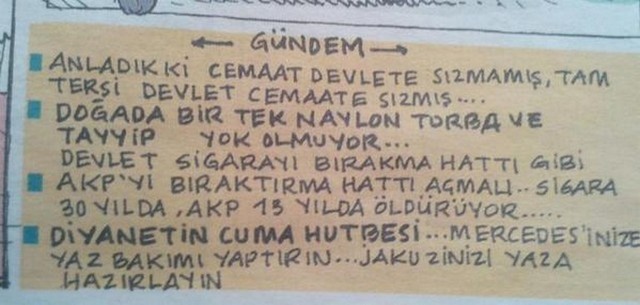 ← GÜNDEM →
ANLADIK Kİ CEMAAT DEVLETE SIZMAMIŞ, TAM
TERSİ DEVLET CEMAATE SIZMIŞ....
DOĞADA BİR TEK NAYLON TORBA VE
TAYYİP YOK OLMUYOR...
DEVLET SİGARAYI BIRAKMA HATTI GİBİ
AKP'Yİ BIRAKTIRMA HATTI AÇMALI.. SİGARA
30 YILDA, AKP 13 YILDA ÖLDÜRÜYOR.....
DİYANETİN CUMA HUTBESİ...MERCEDES'İNİZE
YAZ BAKIMI YAPTIRIN...JAKUZİNİZİ YAZA
HAZIRLAYIN